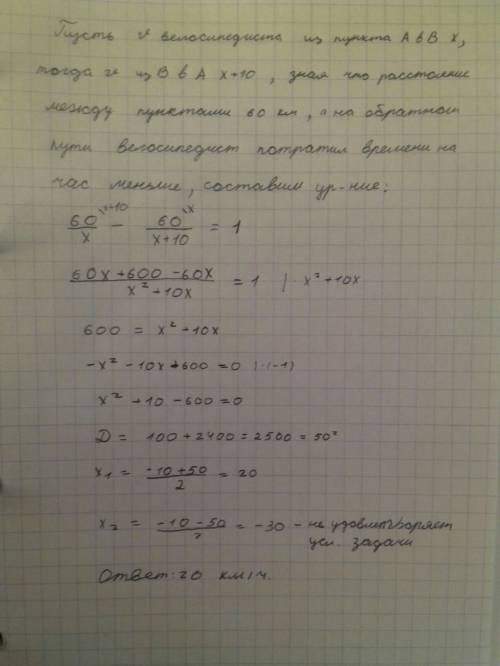 Пусть v велосипедиста из пункта А в В х,
тогда v из В в А х+10, зная что расстояние
между пунктами 60 км, а на обратном
пути велосипедист потратил времени на
час меньше, составим ур-ние:
60/x ^(x+10) - 60/(x+10) ^(x) = 1
(60x+600-60x)/(x²+10x) = 1 | · x²+10x
600 = x²+10x
-x²-10x+600=0 | · (-1)
x²+10-600=0
D = 100+2400=2500=50²
x₁ = (-10+50)/2 = 20
x₂ = (-10-50)/2 = -30 - не удовлетворяет
усл. задачи
Ответ: 20 км/ч.